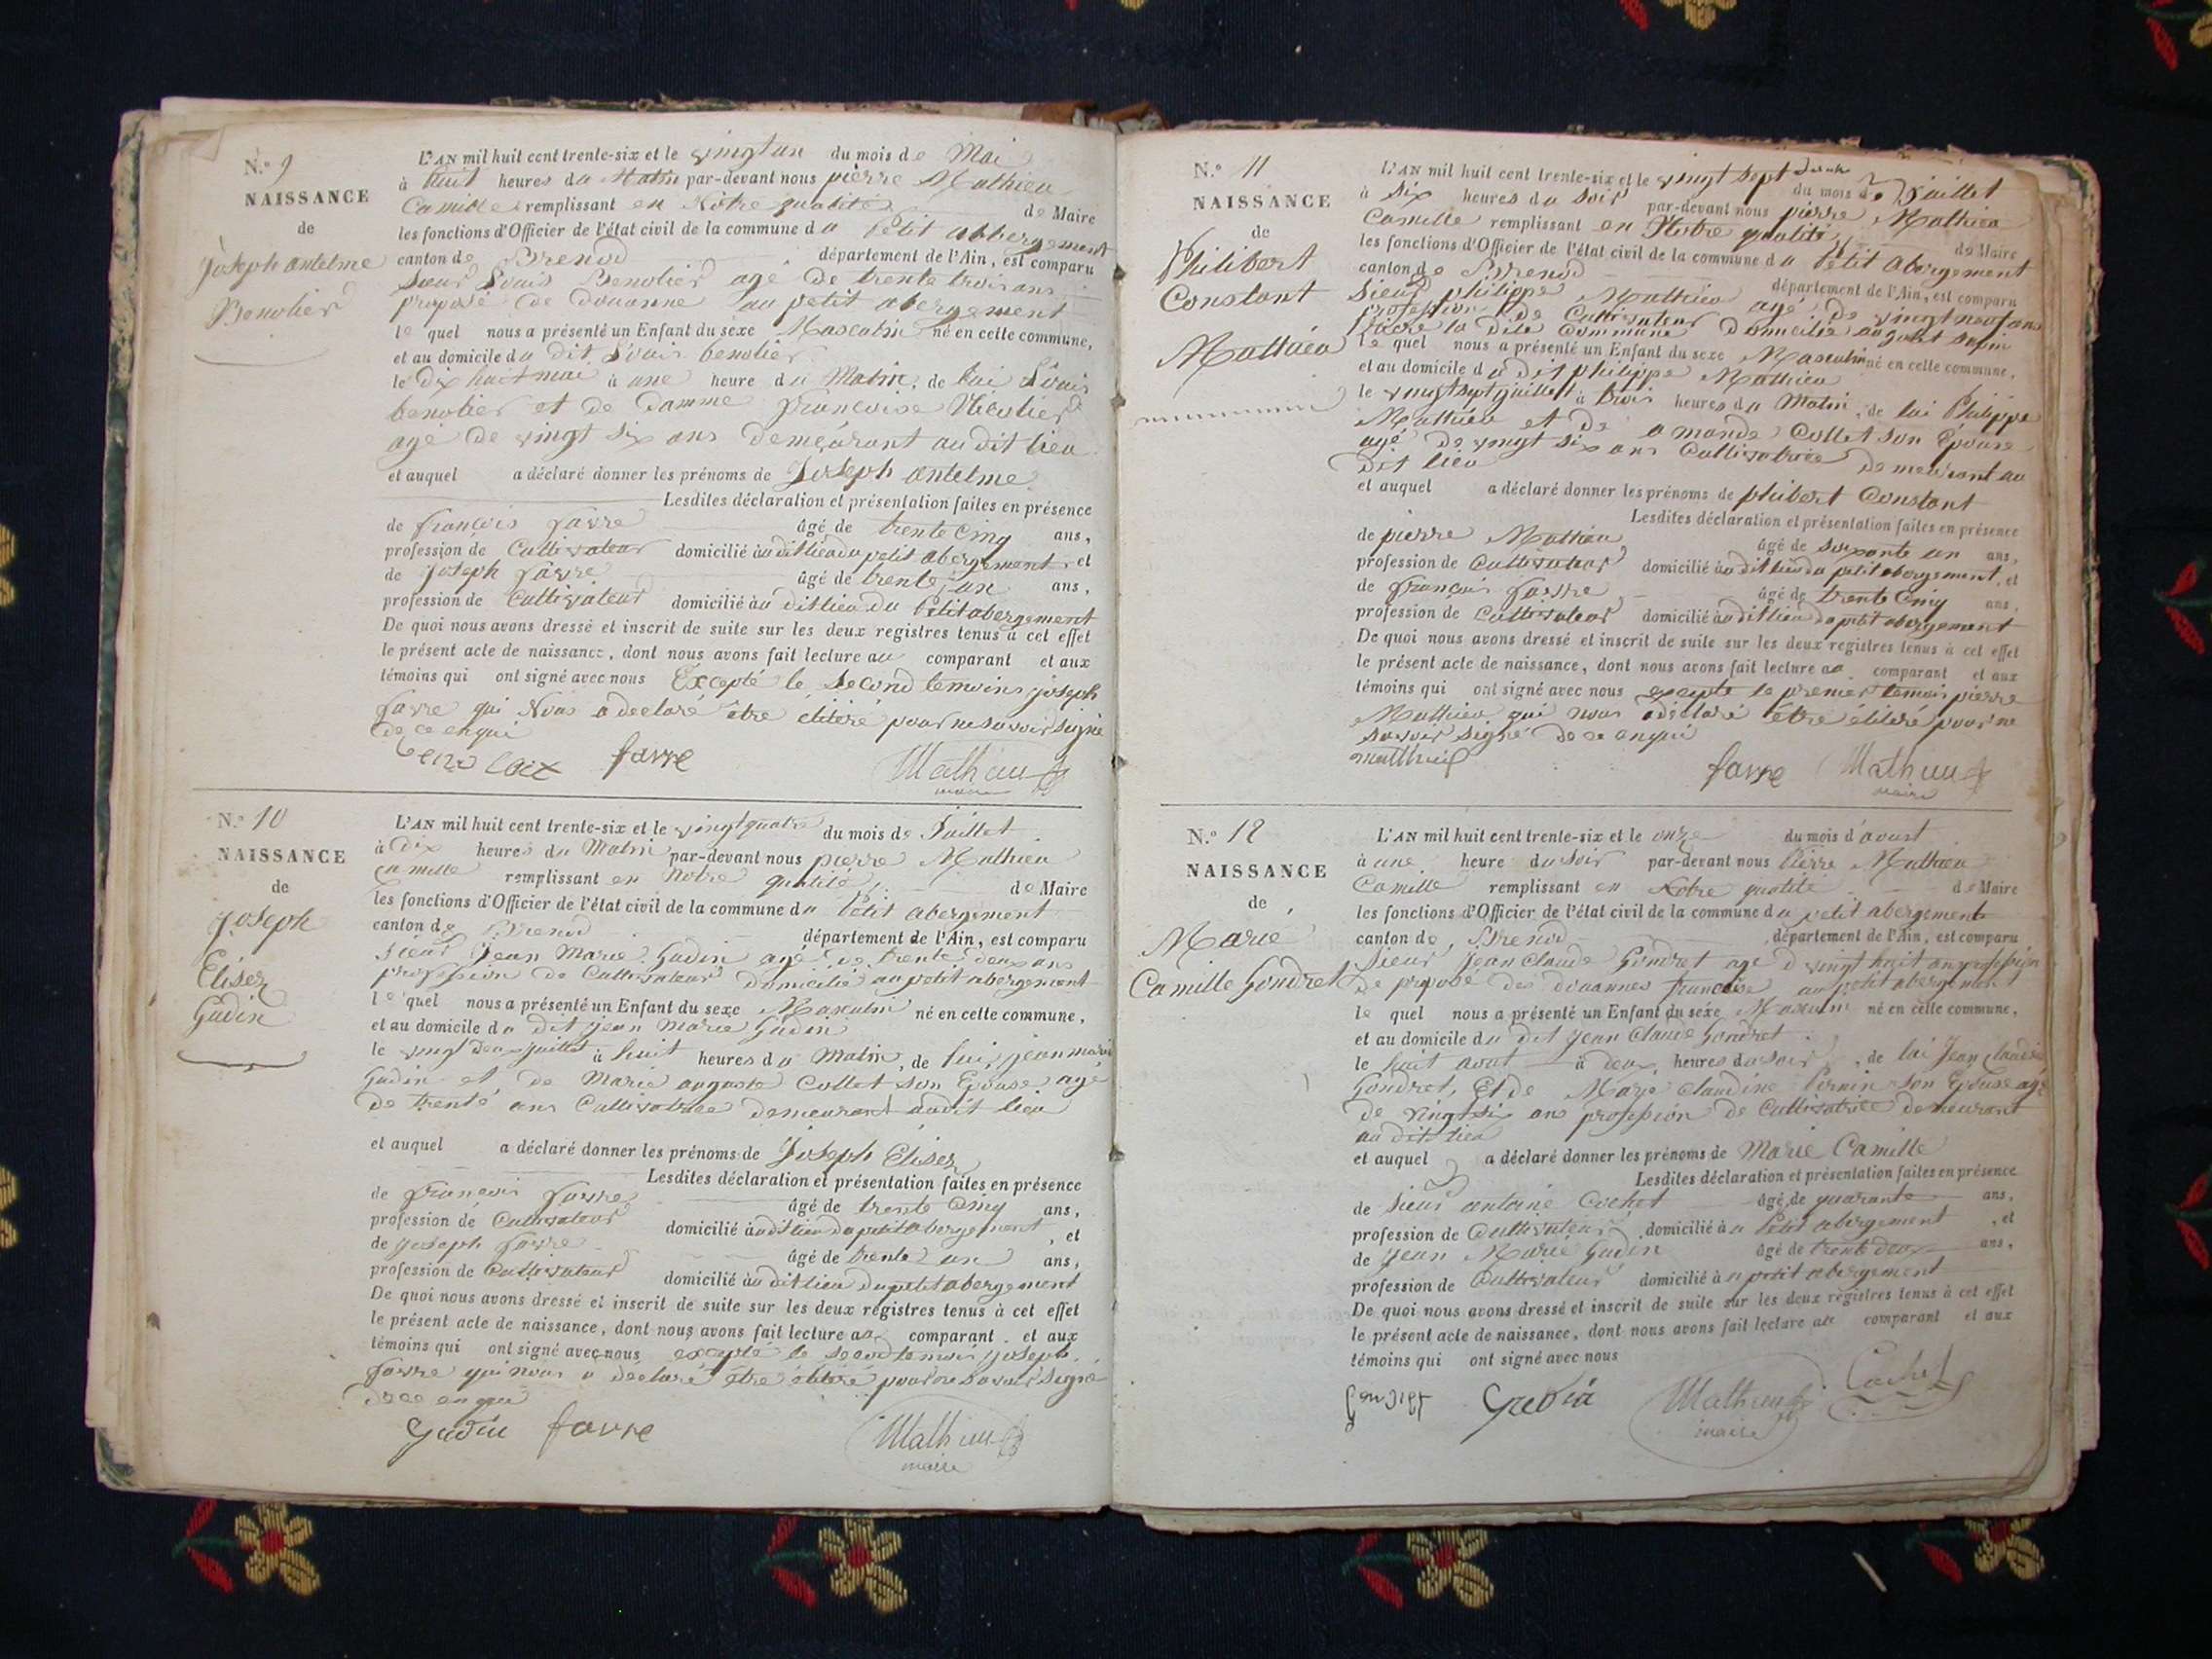 N.° 9
NAISSANCE
de
Joseph antelme
Benolier
L'AN mil huit cent trente-six et le vingt un du mois de Mai
à huit heures du Matin par-devant nous pierre Mathieu
Camille remplissant en Nôtre qualité de Maire
les fonctions d'Officier de l'état civil de la commune du Petit abbergement
canton de Brenod département de l'Ain, est comparu
Louis Benolier agé de trente trois ans
préposé de douanne au petit abergement
le quel nous a présenté un Enfant du sexe Masculin né en cette commune,
et au domicile du dit Louis benolier
le dix huit mai à une heure du Matin, de lui Louis
benolier et de Damme françoise
agé de vingt six ans demeurant au dit lieu
et auquel a déclaré donner les prénoms de Joseph antelme
Lesdites déclaration et présentation faites en présence
de françois favre âgé de trente Cinq ans,
profession de Cultivateur domicilié àu dit lieu du petit abergement, et
de Joseph favre âgé de trente un ans,
profession de Cultivateur domicilié àu dit lieu du Petit abergement
De quoi nous avons dressé et inscrit de suite sur les deux registres tenus à cet effet
le présent acte de naissance, dont nous avons fait lecture au comparant et aux
témoins qui ont signé avec nous Excepté le second temoins joseph
favre qui Nous a declaré être élitéré pour ne savoir signé
de ce enqui
favre Mathieu
maire
N.° 10
NAISSANCE
de
Joseph
Elisez
Gudin
L'AN mil huit cent trente-six et le vingt quatre du mois de Juillet
à dix heures du Matin par-devant nous pierre Mathieu
Camille remplissant en Notre qualité de Maire
les fonctions d'Officier de l'état civil de la commune du Petit abergement
canton de Brenod département de l'Ain, est comparu
sieur Jean Marie Gudin agé de trente deux ans
profession de Cultivateur domicilié au petit abergement
le quel nous a présenté un Enfant du sexe Masculin né en cette commune,
et au domicile du dit jean Marie Gudin
le vingt deux juillet à huit heures du Matin, de lui jean marie
Gudin et de Marie auguste Collet son Epouse agé
de trente ans Cultivatrice demeurant audit lieu
et auquel a déclaré donner les prénoms de Joseph Elisez
Lesdites déclaration et présentation faites en présence
de françois favre âgé de trente Cinq ans,
profession de Cultivateur domicilié àu dit lieu du petit abergement, et
de joseph favre âgé de trente un ans,
profession de Cultivateur domicilié àu dit lieu du petit abergement
De quoi nous avons dressé et inscrit de suite sur les deux registres tenus à cet effet
le présent acte de naissance, dont nous avons fait lecture au comparant et aux
témoins qui ont signé avec nous excepté le second temoin joseph
favre qui nous a déclaré être élitéré pour ne savoir signé
de ce enqui
Gudin favre Mathieu
maire
N.° 11
NAISSANCE
de
Philibert
Constant
Mathieu
L'AN mil huit cent trente-six et le vingt sept du mois de Juillet
à six heures du soir par-devant nous pierre Mathieu
Camille remplissant en Nôtre qualité de Maire
les fonctions d'Officier de l'état civil de la commune du Petit abergement
canton de Brenod département de l'Ain, est comparu
sieur philippe Mathieu agé de vingt neuf ans
profession de Cultivateur domicilié au
la dite Commune
le quel nous a présenté un Enfant du sexe Masculin né en cette commune,
et au domicile du dit philippe Mathieu
le vingt sept juillet à trois heures du Matin, de lui Philippe
Mathieu et de amande Collet son Epouse
agé de vingt six ans Cultivatrice demeurant au
dit lieu
et auquel a déclaré donner les prénoms de philibert Constant
Lesdites déclaration et présentation faites en présence
de pierre Mathieu âgé de soixante un ans,
profession de Cultivateur domicilié àu dit lieu du petit abergement, et
de françois favre âgé de trente Cinq ans,
profession de Cultivateur domicilié àu dit lieu du petit abergement
De quoi nous avons dressé et inscrit de suite sur les deux registres tenus à cet effet
le présent acte de naissance, dont nous avons fait lecture au comparant et aux
témoins qui ont signé avec nous excepté le premier temoin pierre
Mathieu qui nous a déclaré être élitéré pour ne
savoir signé de ce enqui
favre Mathieu
maire
N.° 12
NAISSANCE
de
Marie
Camille Gondret
L'AN mil huit cent trente-six et le onze du mois d'avust
à une heure du soir par-devant nous Pierre Mathieu
Camille remplissant en Notre qualité de Maire
les fonctions d'Officier de l'état civil de la commune du petit abergement
canton de Brenod département de l'Ain, est comparu
sieur jean Claude Gondret agé d vingt huit an profession
de préposé des douannes française au petit abergement
le quel nous a présenté un Enfant du sexe Masculin né en cette commune,
et au domicile du dit jean Claude Gondret
le huit avut à deux heures du soir, de lui Jean Claude
Gondret, Et de Marie Claudine Pernin son Epouse agé
de vingt six ans profession de Cultivatrice demeurant
au dit lieu
et auquel a déclaré donner les prénoms de Marie Camille
Lesdites déclaration et présentation faites en présence
de sieur antoine Cochet âgé de quarante ans,
profession de Cultivateur domicilié àu Petit abergement, et
de jean Marie Gudin âgé de trente deux ans,
profession de Cultivateur domicilié àu petit abergement
De quoi nous avons dressé et inscrit de suite sur les deux registres tenus à cet effet
le présent acte de naissance, dont nous avons fait lecture au comparant et aux
témoins qui ont signé avec nous
Gudin Mathieu Cochet
maire